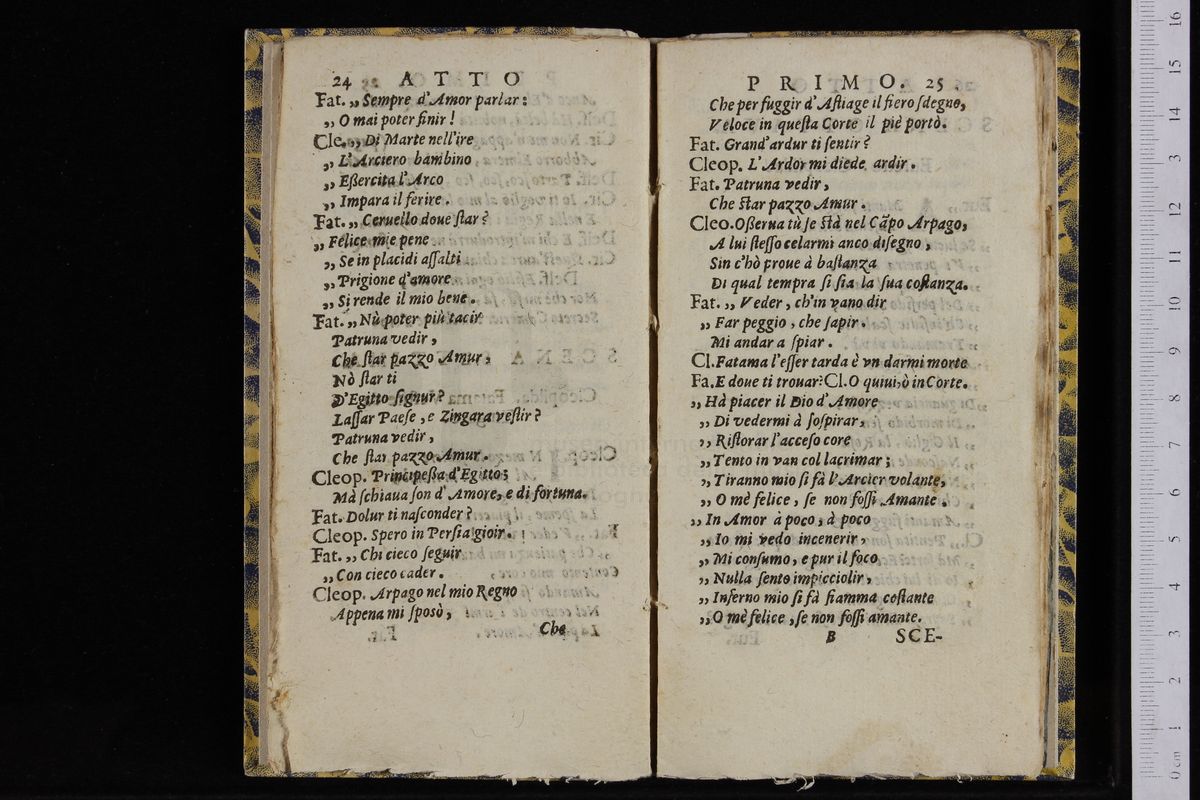 24 ATTO
Fat. ,, Sempre d'Amor parlar:
,, O mai poter finir!
Cle. ,, Di Marte nell'ire
,, L'Arciero bambino
,, Eßercita l'Arco
,, Impara il ferire.
Fat. ,, Ceruello doue ſtar?
,, Felice mie pene
,, Se in placidi aſſalti
,, Prigione d'amore
,, Si rende il mio bene.
Fat. ,, Nù poter più tacir
Patruna vedir,
Che ſtar pazzo Amur,
Nò ſtar ti
D'Egitto ſignur?
Laſſar Paeſe, e Zingara veſtir?
Patruna vedir,
Che ſtar pazzo Amur.
Cleop. Principeßa d'Egitto;
Mà ſchiaua ſon d'Amore, e di fortuna.
Fat. Dolur ti naſconder?
Cleop. Spero in Perſia gioir.
Fat. ,, Chi cieco ſeguir
,, Con cieco cader.
Cleop. Arpago nel mio Regno
Appena mi ſposò,
Che
PRIMO. 25
Che per fuggir d'Aſtiage il fiero ſdegno,
Veloce in queſta Corte il piè portò.
Fat. Grand'ardur ti ſentir?
Cleop. L'Ardor mi diede ardir.
Fat. Patruna vedir,
Che ſtar pazzo Amur.
Cleo. Oßerua tù ſe ſtà nel Cãpo Arpago,
A lui ſteſſo celarmi anco diſegno,
Sin c'hò proue à baſtanza
Di qual tempra ſi ſia la ſua coſtanza.
Fat. ,, Veder, ch'in vano dir
,, Far peggio, che ſapir.
Mi andar a ſpiar.
Cl. Fatama l'eſſer tarda è vn darmi morte
Fa. E doue ti trouar? Cl. O quiui, ò in Corte.
,, Hà piacer il Dio d'Amore
,, Di vedermi à ſoſpirar,
,, Riſtorar l'acceſo core
,, Tento in van col lacrimar;
,, Tiranno mio ſi fà l'Arcier volante,
,, O mè felice, ſe non foſſi Amante.
,, In Amor à poco, à poco
,, Io mi vedo incenerir,
,, Mi conſumo, e pur il foco
,, Nulla ſento impicciolir,
,, Inferno mio ſi fà fiamma coſtante
,, O mè felice, ſe non foſſi amante.
B SCE-
16
15
14
13
12
11
10
9
8
7
6
5
4
3
2
1
0 cm